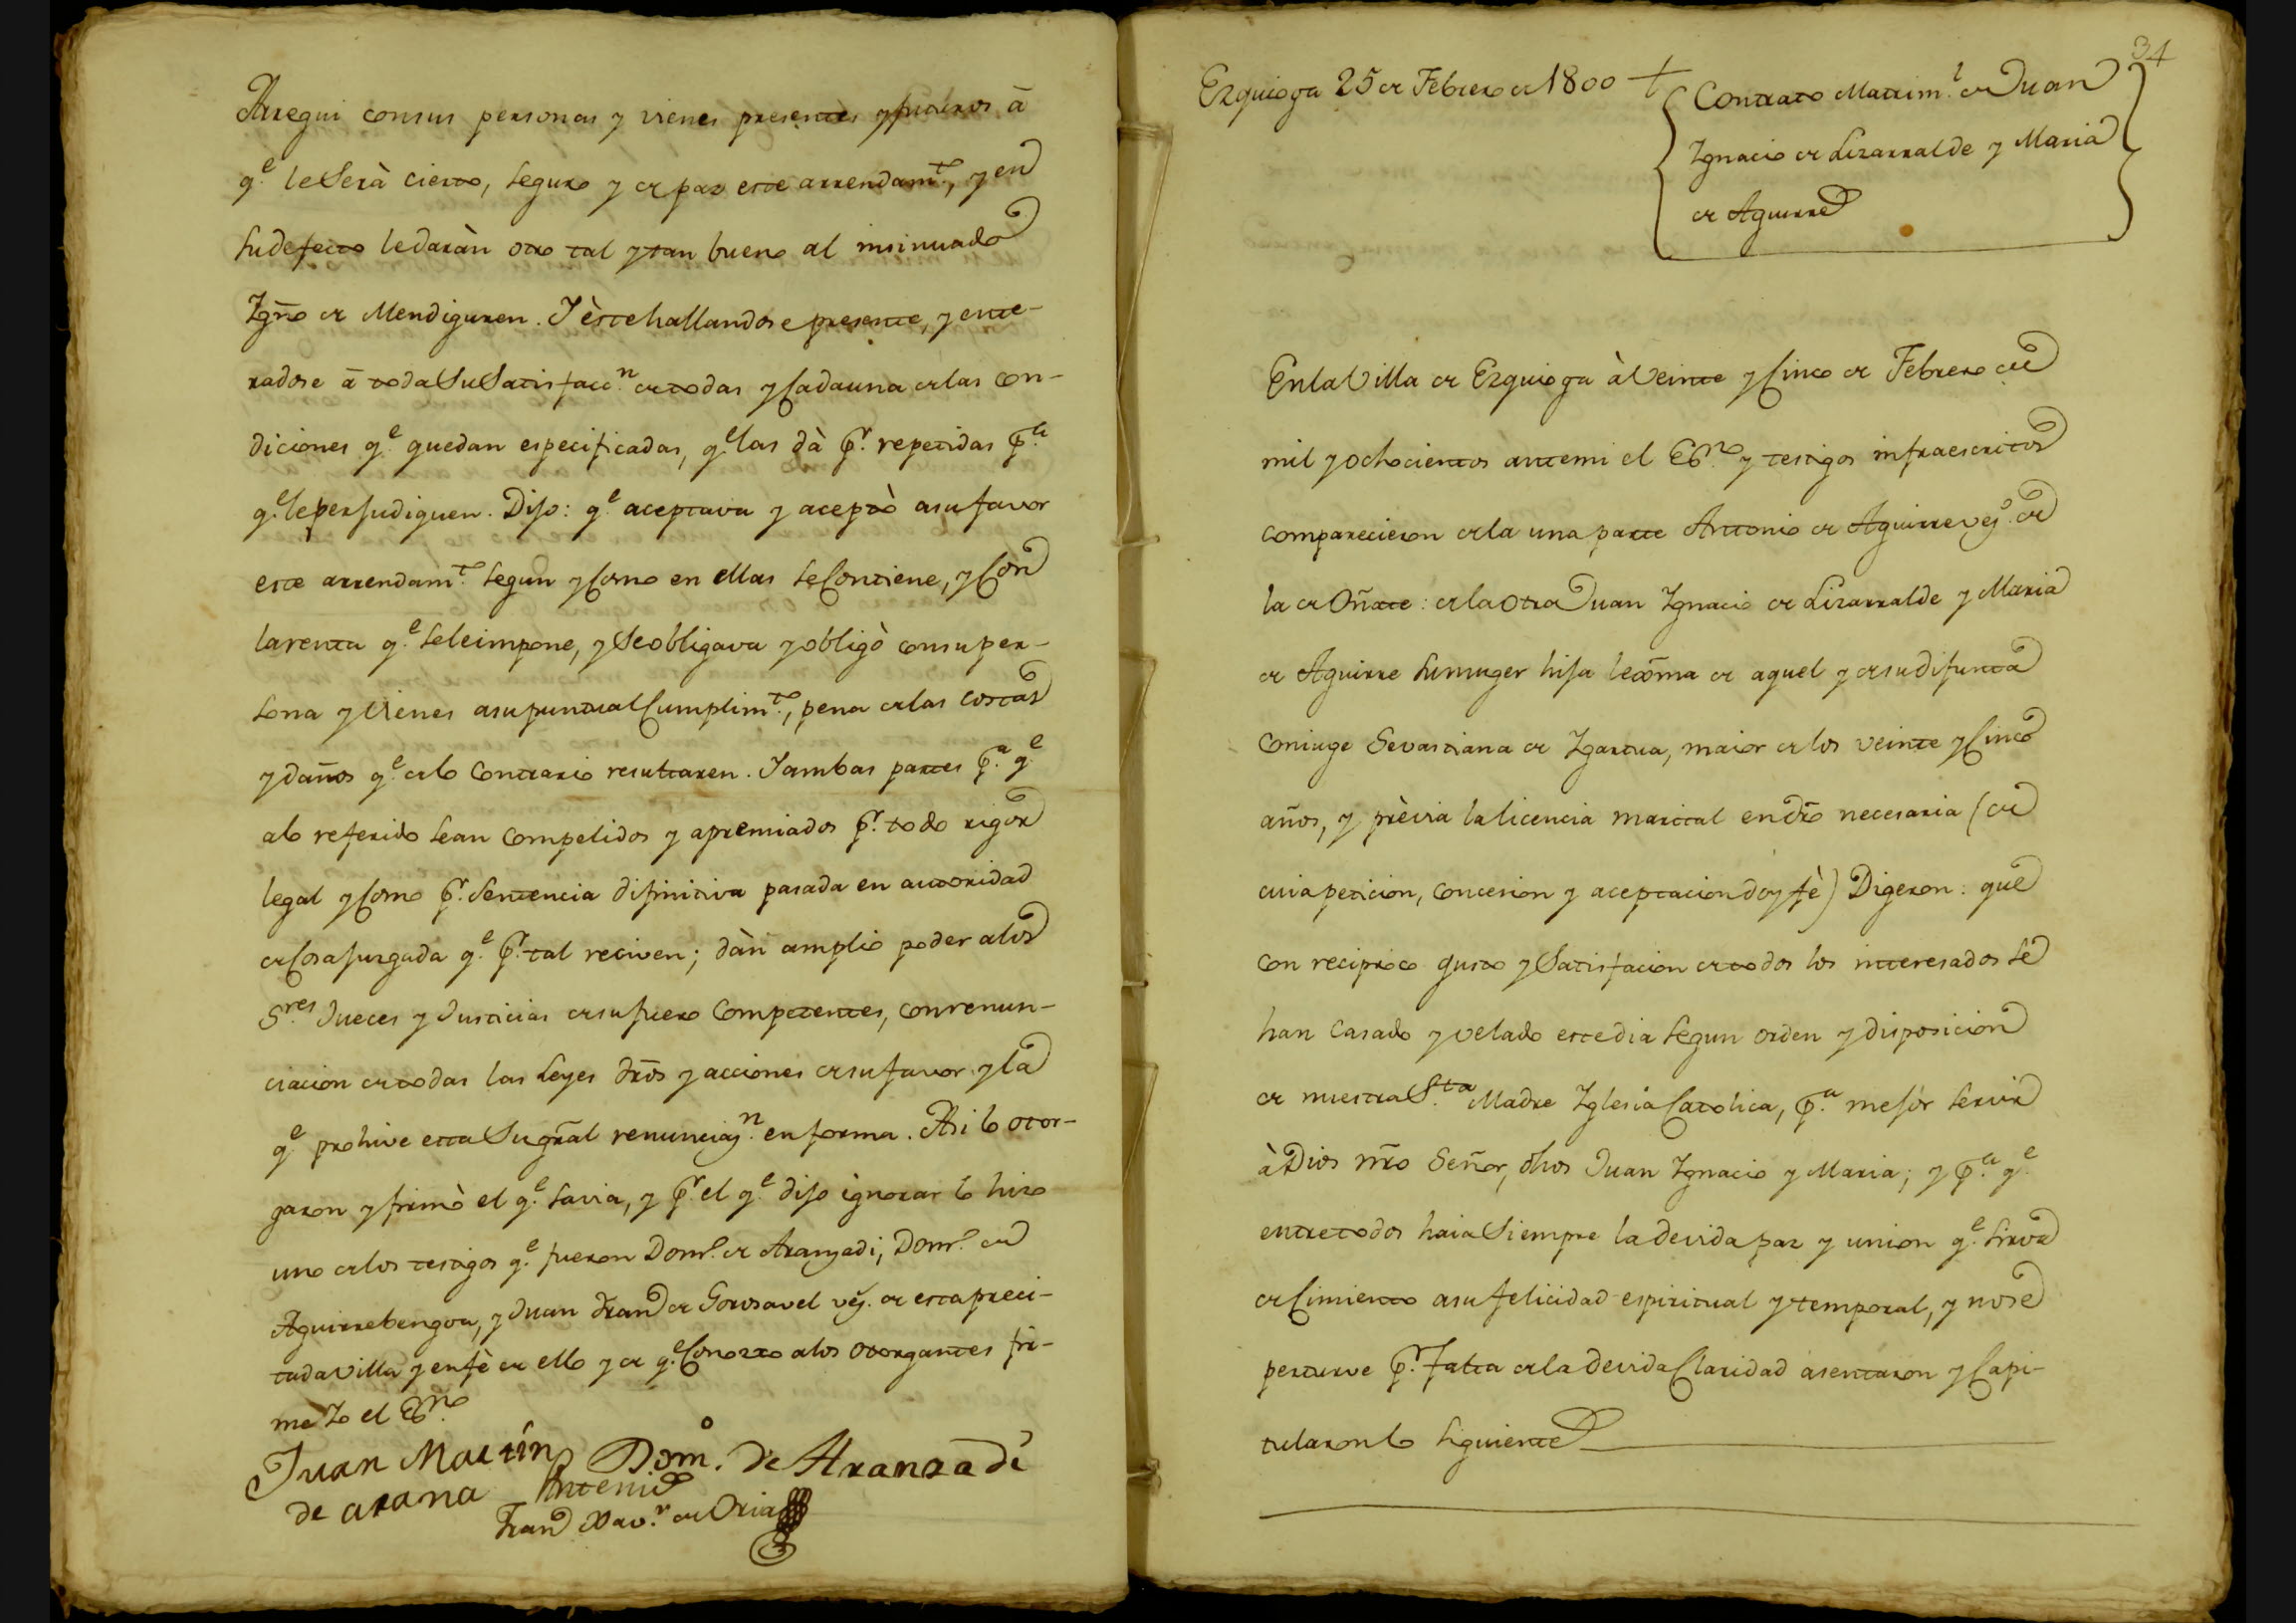 Arregui consus personas y vienes presentes y futuros â
q.e le Serà cierto, seguro y de paz este arrendam.to, y en
sudefecto ledaràn otro tal y tan bueno al insinuado
Ygn̄o de Mendiguren. Y èstehallandose presente, y ente-
radose â toda Su Satisfacc.n detodas y Cadauna delas Con-
diciones q.e quedan especificadas, q.e las dà p.r repetidas p.a
q.e leperjudiquen. Dijo: q.e aceptava y aceptò asufavor
este arrendam.to segun y Como en ellas seContiene, y Con
larenta q.e seleimpone, y Seobligava y obligò consuper-
sona y Vienes asupuntual Cumplim.to, pena delas costas
y daños q.e delo Contrario resultaren. Y ambas partes p.a q.e
alo referido sean Compelidos y apremiados p.r todo rigor
legal y Como p.r Sentencia difinitiva pasada en autoridad
deCosa Juzgada q.e p.r tal reciven; dàn amplio poder alos
S.res Jueces y Justicias desufuero Competentes, conrenun-
ciacion detodas las Leyes dr̄os y acciones desufavor y la
q.e prohive esta Sugr̄al renunciaz.n en forma. Asi lo otor-
garon y firmò el q.e savia, y p.r el q.e dijo ignorar lo hizo
uno delos testigos q.e fueron Dom.o de Aranzadi, Dom.o de
Aguirrebengoa, y Juan Fran.co de Gorosavel vez.s de estapreci-
tadaVilla y enfè de ello y de q.e Conozco alos otorgantes fir-
mè Yo el Es.no
Juan Martín Dom.o de Aranzadi
de arana Antemi
Fran.co Xav.r de Oria
34
Ezquioga 25 de Febrero de 1800
Contrato Matrim.l de Juan
Ygnacio de Lizarralde y Maria
de Aguirre
EnlaVilla de Ezquioga à Veinte y Cinco de Febrero de
mil y ochocientos antemi el Es.no y testigos infraescritos
comparecieron dela una parte Antonio de Aguirre vez.o de
la de Oñate: dela otra Juan Ygnacio de Lizarralde y Maria
de Aguirre sumuger hija lextm̄a de aquel y desudifunta
Coniuge Sevastiana de Ygartua, maior delos veinte y Cinco
años, y prèvia lalicencia marital endr̄o necesaria (de
cuiapeticion, concesion y aceptaciondoyfè) Digeron: que
con reciproco gusto y Satisfacion detodos los interesados se
han Casado y velado estedia segun orden y disposicion
de nuestra S.ta Madre Yglesia Catolica, p.a mejòr servir
à Dios nr̄o Señor, dhos Juan Ygnacio y Maria; y p.a q.e
entretodos haia Siempre ladevida paz y union q.e sirva
deCimiento asufelicidad espiritual y temporal, y nose
perturve p.r falta dela devida Claridad asentaron y Capi-
tularonlo siguiente